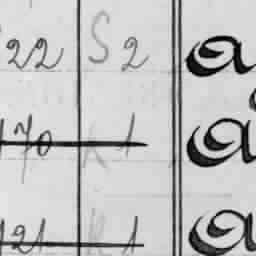 22 S 2 a
170 K 1 a
121 K 1 a